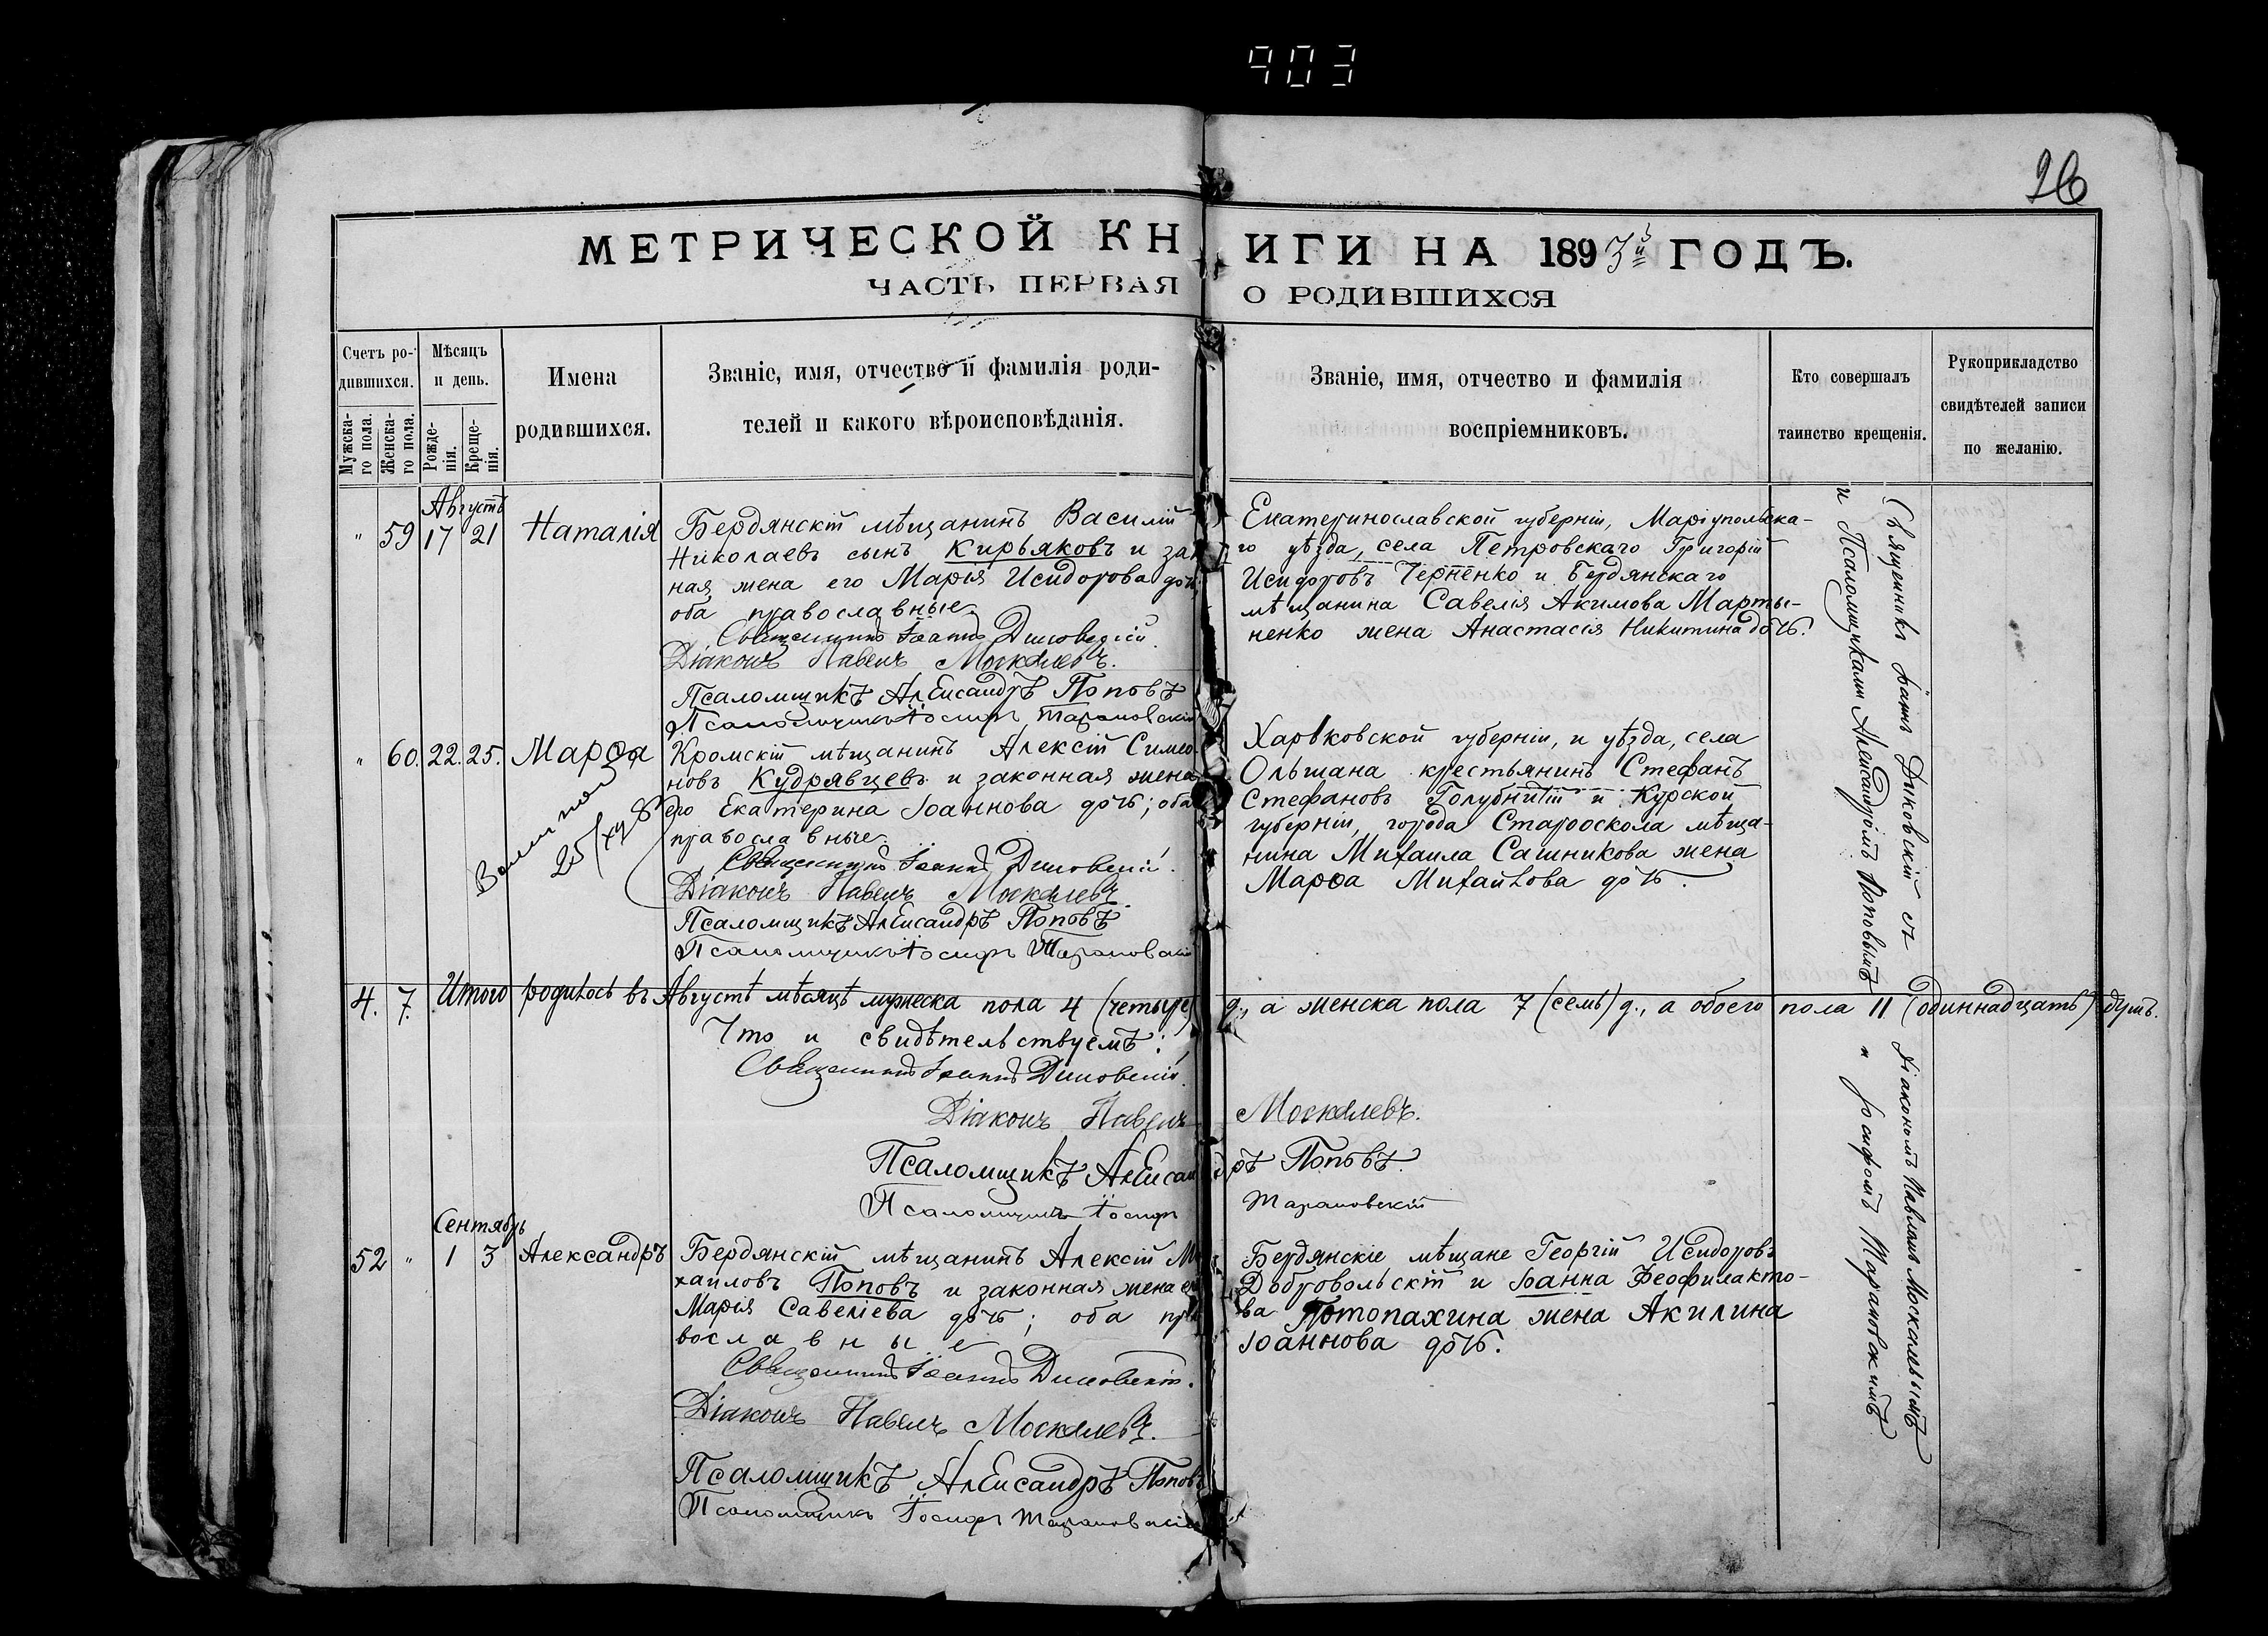 903
26
МЕТРИЧЕСКОЙ КНИГИ НА 1893й ГОДЪ.
ЧАСТЬ ПЕРВАЯ О РОДИВШИХСЯ
Счетъ ро-
дившихся.
Мужска-
го пола.
Женска-
го пола.
Мѣсяцъ
и день.
Рожде-
нія.
Креще-
нія.
Имена
родившихся.
Званіе, имя, отчество и фамилія роди-
телей и какого вѣроисповѣданія.
Званіе, имя, отчество и фамилія
воспріемниковъ.
Кто совершалъ
таинство крещенія.
Рукоприкладство
свидѣтелей записи
по желанію.
Августъ
" 59 17 21 Наталія
Бердянскій мѣщанинъ Василій
Николаевъ сынъ Кирьяковъ и зак
ная жена его Марія Исидорова дочь
оба православные
Священникъ Іоаннъ Дыковскій
Діаконъ Павелъ Москалевъ.
Псаломщикъ Александръ Поповъ
Псаломщикъ Іосифъ Тарановскій
Екатеринославской губерніи, Маріупольска-
го уѣзда, села Петровскаго Григорій
Исидоровъ Черненко и Бердянскаго
мѣщанина Савелія Акимова Марты-
ненко жена Анастасія Никитина дочь.
" 60. 22. 25. Марѳа
Кромскій мѣщанинъ Алексій Симео
новъ Кудрявцевъ и законная жена
его Екатерина Іоаннова дочь; оба
православные
Священникъ Іоаннъ Дыковскій.
Діаконъ Павелъ Москалевъ
Псаломщикъ Александръ Поповъ
Псаломщикъ Іосифъ Тарановскій
Харьковской губерніи, и уѣзда, села
Ольшана крестьянинъ Стефанъ
Стефановъ Голубничій и Курской
губерніи, города Староскола мѣща-
нина Михаила Сашникова жена
Марѳа Михайлова дочь.
4. 7. Итого родилось въ Августѣ мѣсяцѣ мужеска пола 4 (четыре) д., а женска пола 7 (семь) д., а обоего пола 11 (одиннадцать) душъ.
Что и свидѣтельствуемъ:
Священникъ Іоаннъ Дыковскій.
Діаконъ Павелъ Москалевъ.
Псаломщикъ Александръ Поповъ.
Псаломщикъ Іосифъ Тарановскій
Сентябрь
52 " 1 3 Александръ
Бердянскій мѣщанинъ Алексій Ми
хайловъ Поповъ и законная жена ег
Марія Савеліева дочь; оба пра
вославные
Священникъ Іоаннъ Дыковскій.
Діаконъ Павелъ Москалевъ.
Псаломщикъ Александръ Поповъ
Псаломщикъ Іосифъ Тарановскій
Бердянскіе мѣщане Георгій Исидоровъ
Добровольскій и Іоанна Феофилакто-
ва Потопахина жена Акилина
Іоаннова дочь.
Священникъ Іоаннъ Дыковскій съ Діакономъ Павломъ Москалевымъ
и Псаломщиками Александромъ Поповымъ и Іосифомъ Тарановскимъ